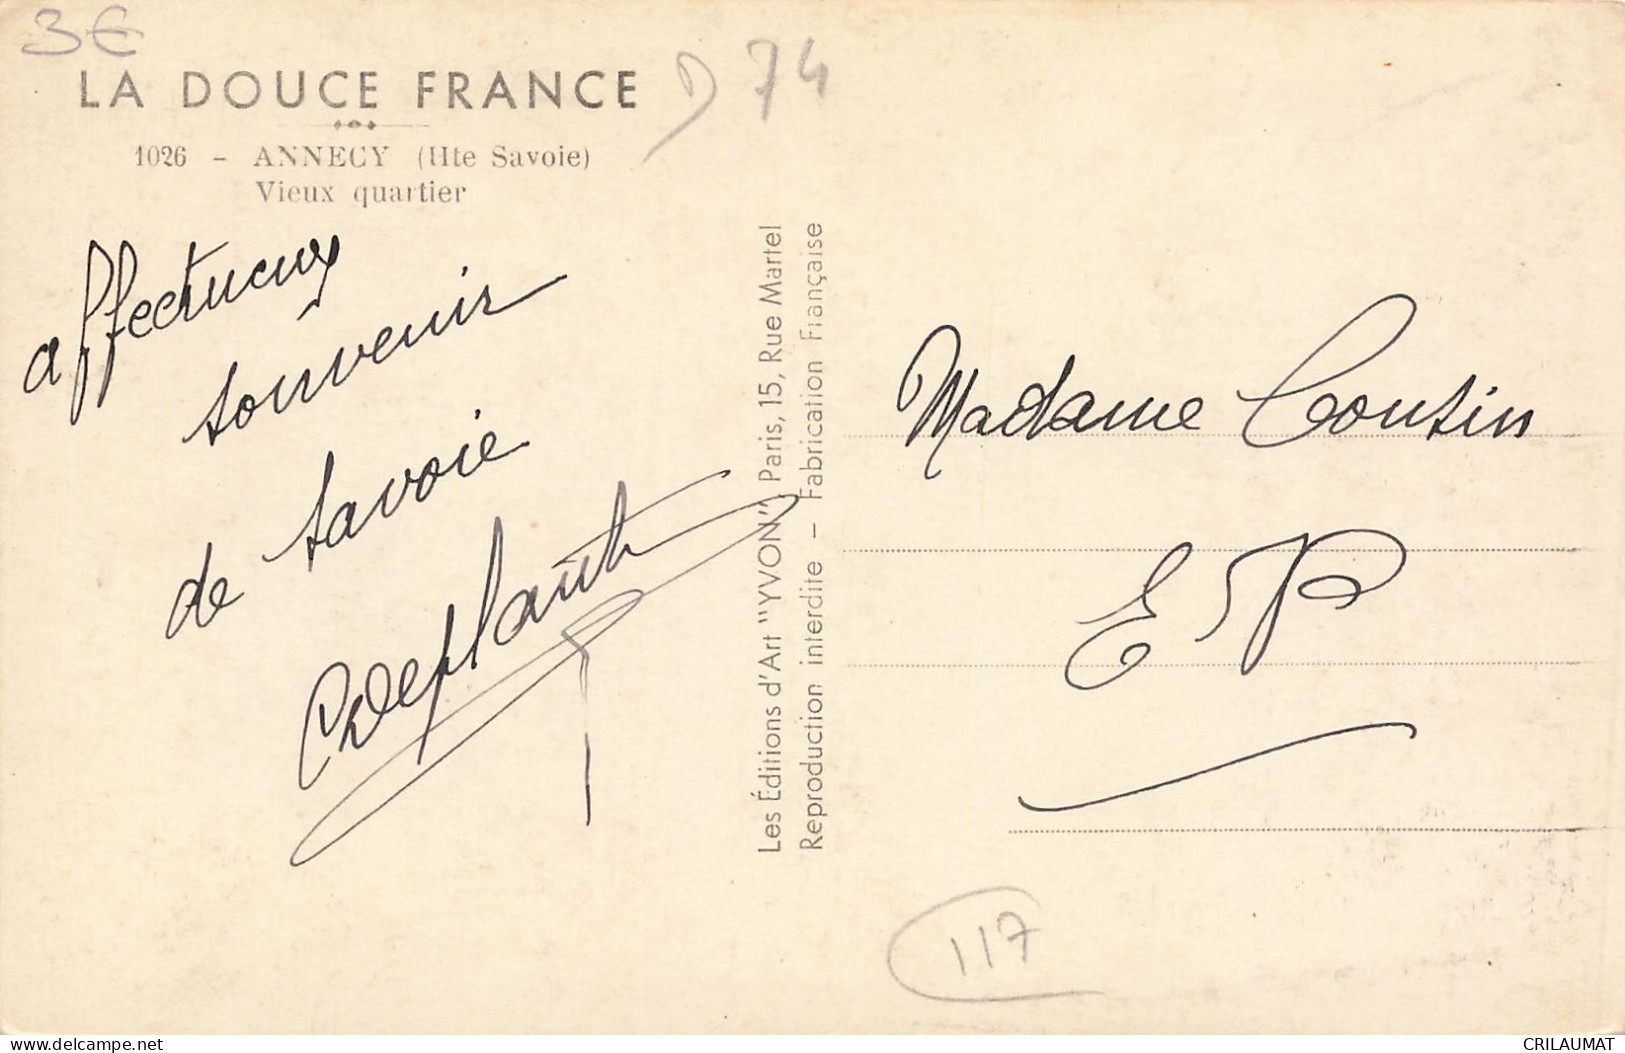 3€
LA DOUCE FRANCE
D 74
1026 - ANNECY (Hte Savoie)
Vieux quartier
affectueux
souvenir
de Savoie
Les Éditions d'Art "YVON", Paris, 15, Rue Martel
Reproduction interdite - Fabrication Française
Madame Cousin
E P
117
www.delcampe.net
CRILAUMAT